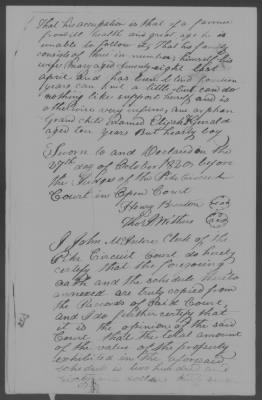 That his occupation is that of a farmer
from ill health and great age he is
unable to follow it. That his family
consists of three in number; himself his
wife Mary aged seventy eight last
April and has been blind fourteen
years can knit a little but can do
nothing like support herself and is
otherwise very infirm, an orphan
Grand child named Elijah
aged ten years But hearty boy
Sworn to and Declared on the
27th day of October 1820 before
the Judges of the Pike Circuit
Court in Open Court
Henry
Thos
I John McIntire Clerk of the
Pike Circuit Court do hereby
certify that the foregoing
oath and the schedule thereto
annexed are truly copied from
the Records of said Court
and I do further certify that
it is the opinion of the said
Court that the total amount
of the value of the property
exhibited in the aforesaid
schedule is two hundred and
dollars